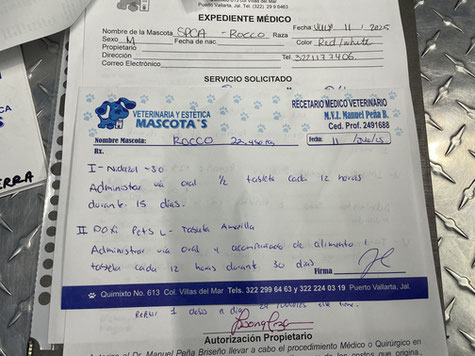 Col. Villas del Mar
Puerto Vallarta, Jal. Tel. (322) 29 9 6463
EXPEDIENTE MÉDICO
Fecha 11 / 2025
Nombre de la Mascota SPCA - ROCCO Raza
Sexo M Fecha de nac. Color Red/white
Propietario
Dirección Tel. 3221177406
Correo Electrónico
SERVICIO SOLICITADO
VETERINARIA Y ESTÉTICA
MASCOTA'S
RECETARIO MEDICO VETERINARIO
M.V.Z. Manuel Peña B.
Ced. Prof. 2491688
Nombre Mascota: ROCCO Fecha: 11
Rx.
I - -50
Administrar via oral 1/2 tableta cada 12 horas
durante 15 días.
II DOXI PETS L - Tableta Amarilla
Administrar via oral y acompañado de alimento 1
tableta cada 12 horas durante 30 días
Firma
Quimixto No. 613 Col. Villas del Mar Tels. 322 299 64 63 y 322 224 03 19 Puerto Vallarta, Jal.
Autorización Propietario
Dr. Manuel Peña Briseño llevar a cabo el procedimiento Médico o Quirúrgico en
ERRA